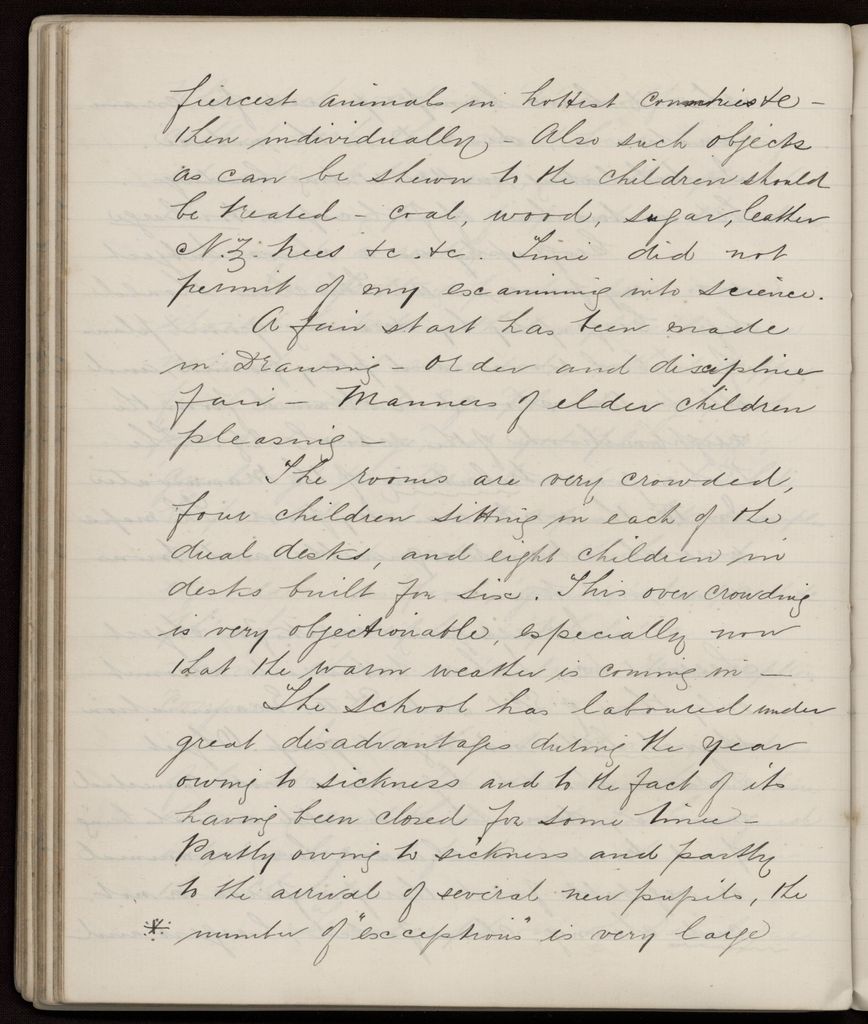 fiercest animals in hottest countries &c –
then individually – Also such objects
as can be shewn to the children should
be treated – coal, wood, sugar, leather
N.Z. trees &c. &c. Time did not
permit of my examining into science.
A fair start has been made
in Drawing – Order and discipline
fair – Manners of elder children
pleasing –
The rooms are very crowded,
four children sitting in each of the
dual desks, and eight children in
desks built for six. This over crowding
is very objectionable, especially now
that the warm weather is coming in –
The school has laboured under
great disadvantages during the year
owing to sickness and to the fact of its
having been closed for some time –
Partly owing to sickness and partly
to the arrival of several new pupils, the
* number of "exceptions" is very large